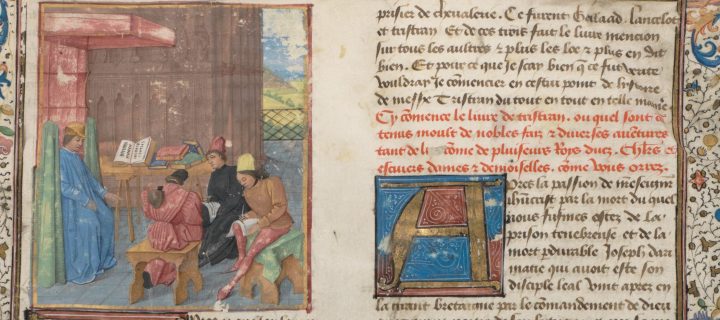 prisier de chevalerie. Ce furent Galaad. Lancelot
et tristan Et de ces trois fait le livre mencion
sur tous les aultres & plus les loe & plus en dit
bien. Et pour ce que Je scay bien q̄ ce fut verite
vouldray Je commencier en cestui point de lystoire
de messe Tristran du tout en tout en telle manie
Cy cōmence le livre de tristran. ou quel sont cō
tenus moult de nobles faiz & diverses avētures
tant de li cōme de pluseurs Roys ducz. Chlrs et
escuiers dames & demoiselles. cōme vous orrez.
Apres la passion de
par la mort du quel
nous fusmes ostez de la
prison tenebreuse et de la
mort pdurable Joseph dari
matie qui avoit este son
disciple leal Vint apres en
la grant bretaigne par le comandement de dieu